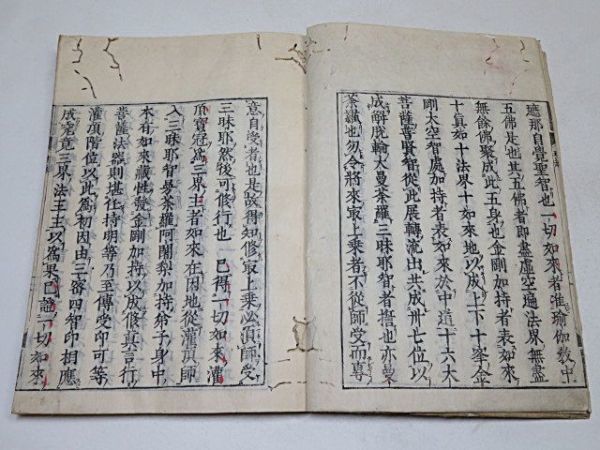 遮那自覺聖智也一切如來者准瑜伽教中
五佛是也其五佛者即盡虛空遍法界無盡
無餘佛聚成此五身也金剛加持者表如來
十真如十法界十如來地以成上下十峯金
剛大空智處加持者表如來於中道十六大
菩薩普賢智從此展轉流出共成卅七位以
成解脫輪大曼荼羅三昧耶智者擔也亦曼
荼羅也勿令將來取上乘者不從師受而專
意自受者也是故得知修取上乘必須師受
三昧耶然後可修行也 已得一切如來灌
頂寶冠爲三界主者如來在因地從灌頂師
入三昧耶智曼荼羅阿闍梨加持弟子身中
本有如來藏性發金剛加持以成修真言行
菩薩法器則堪任持明等乃至傳受印可等
灌頂階位以此爲初因由三密四智印相應
成究竟三界法王主以爲果已證一切如來